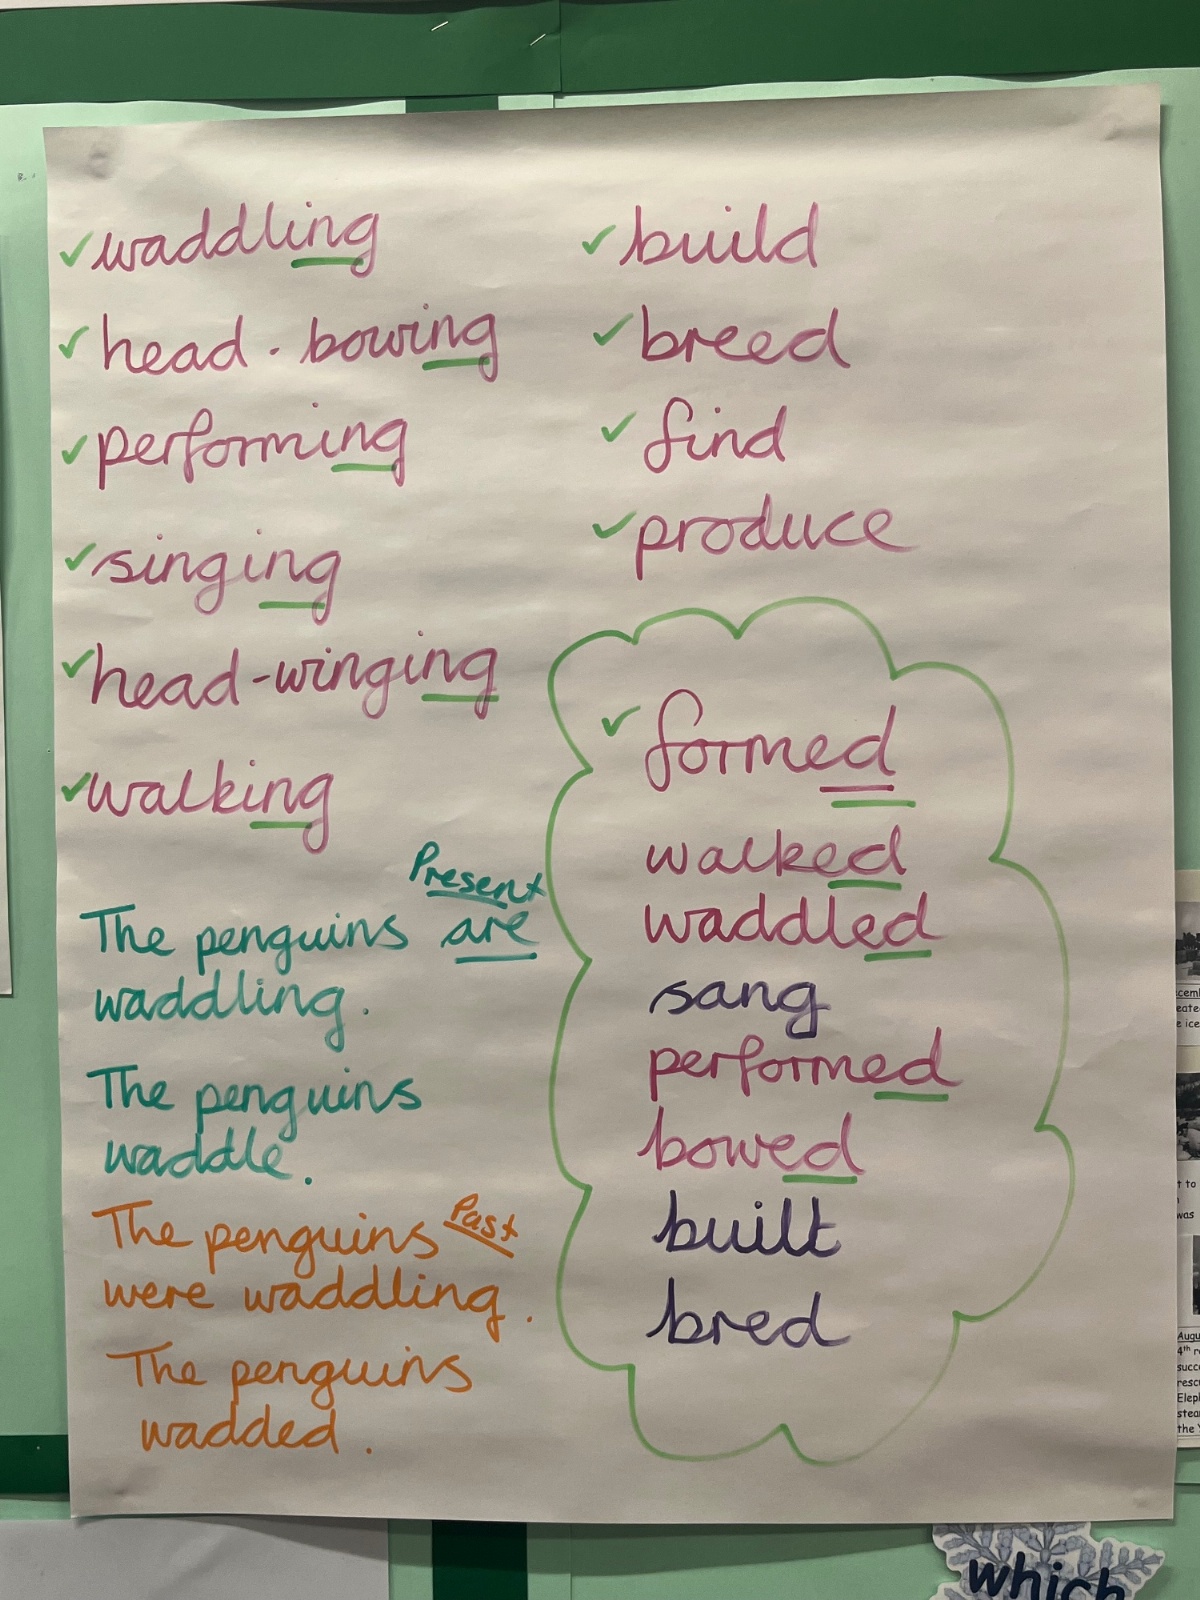 waddling
head-bowing
performing
singing
head-winging
walking
Present
The penguins are
waddling.
The penguins
waddle.
Past
The penguins
were waddling.
The penguins
wadded.
build
breed
find
produce
formed
walked
waddled
sang
performed
bowed
built
bred
which